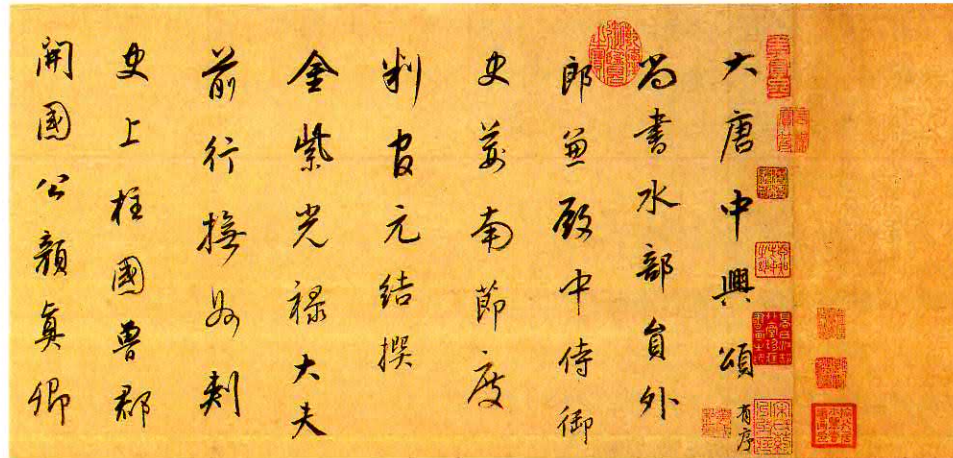 大唐中興頌有序
尚書水部員外
郎兼殿中侍御
史荊南節度
判官元結撰
金紫光祿大夫
前行撫州刺
史上柱國魯郡
開國公顏真卿